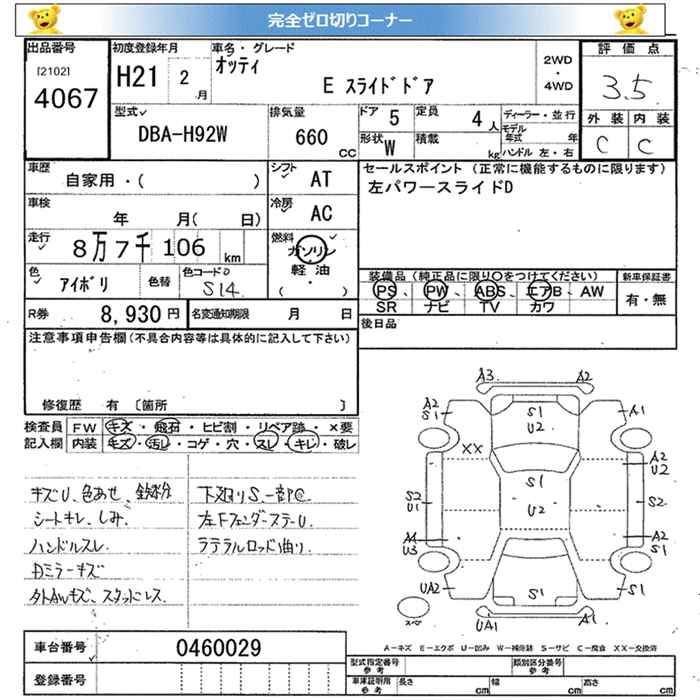 完全ゼロ切りコーナー
出品番号 [2102] 4067
初度登録年月 H21 2 月
車名・グレード オッティ E スライドドア
2WD・4WD
評価点 3.5
外装 C 内装 C
型式 DBA-H92W
排気量 660 CC
ドア 5 定員 4人
形状 W 積載 kg
ディーラー・並行
モデル年式 年
ハンドル 左・右
車歴 自家用・( )
シフト AT
車検 年 月( 日)
冷房 AC
走行 8万7千106 km
燃料 ガソリン・軽油・( )
色 アイボリ 色替 色コードNo S14
セールスポイント (正常に機能するものに限ります)
左パワースライドD
装備品 (純正品に限り○をつけてください)
PS、PW、ABS、エアB、AW
SR ナビ TV カワ
新車保証書 有・無
R券 8,930円
名変通知期限 月 日
後日品
注意事項申告欄(不具合内容等は具体的に記入して下さい)
修復歴 有 〔箇所 〕
検査員記入欄
FW キズ・飛石・ヒビ割・リペア跡・×要
内装 キズ・汚し・コゲ・穴・スレ・キレ・破し
キズU、色あせ、鉄粉
シートキレ、しみ、
ハンドルスレ
Dミラーキズ
外AWキズ、スタッドレス
下廻りS、一部C
左Fフェンダーステー U
ラテラルロッド曲り
A3 A2
A2 S1 S1 U2 A1
XX A2 U2
S2 U1 S1 U2 S2
A1 U3 A2 S1
UA2 S1 S1
スペ UA1 A1
A=キズ E=エクボ U=凹み W=補修跡 S=サビ C=腐食 XX=交換済
車台番号 0460029
登録番号
型式指定番号 参考 類別区分番号 参考
車庫証明用 参考 長さ cm 幅 cm 高さ cm